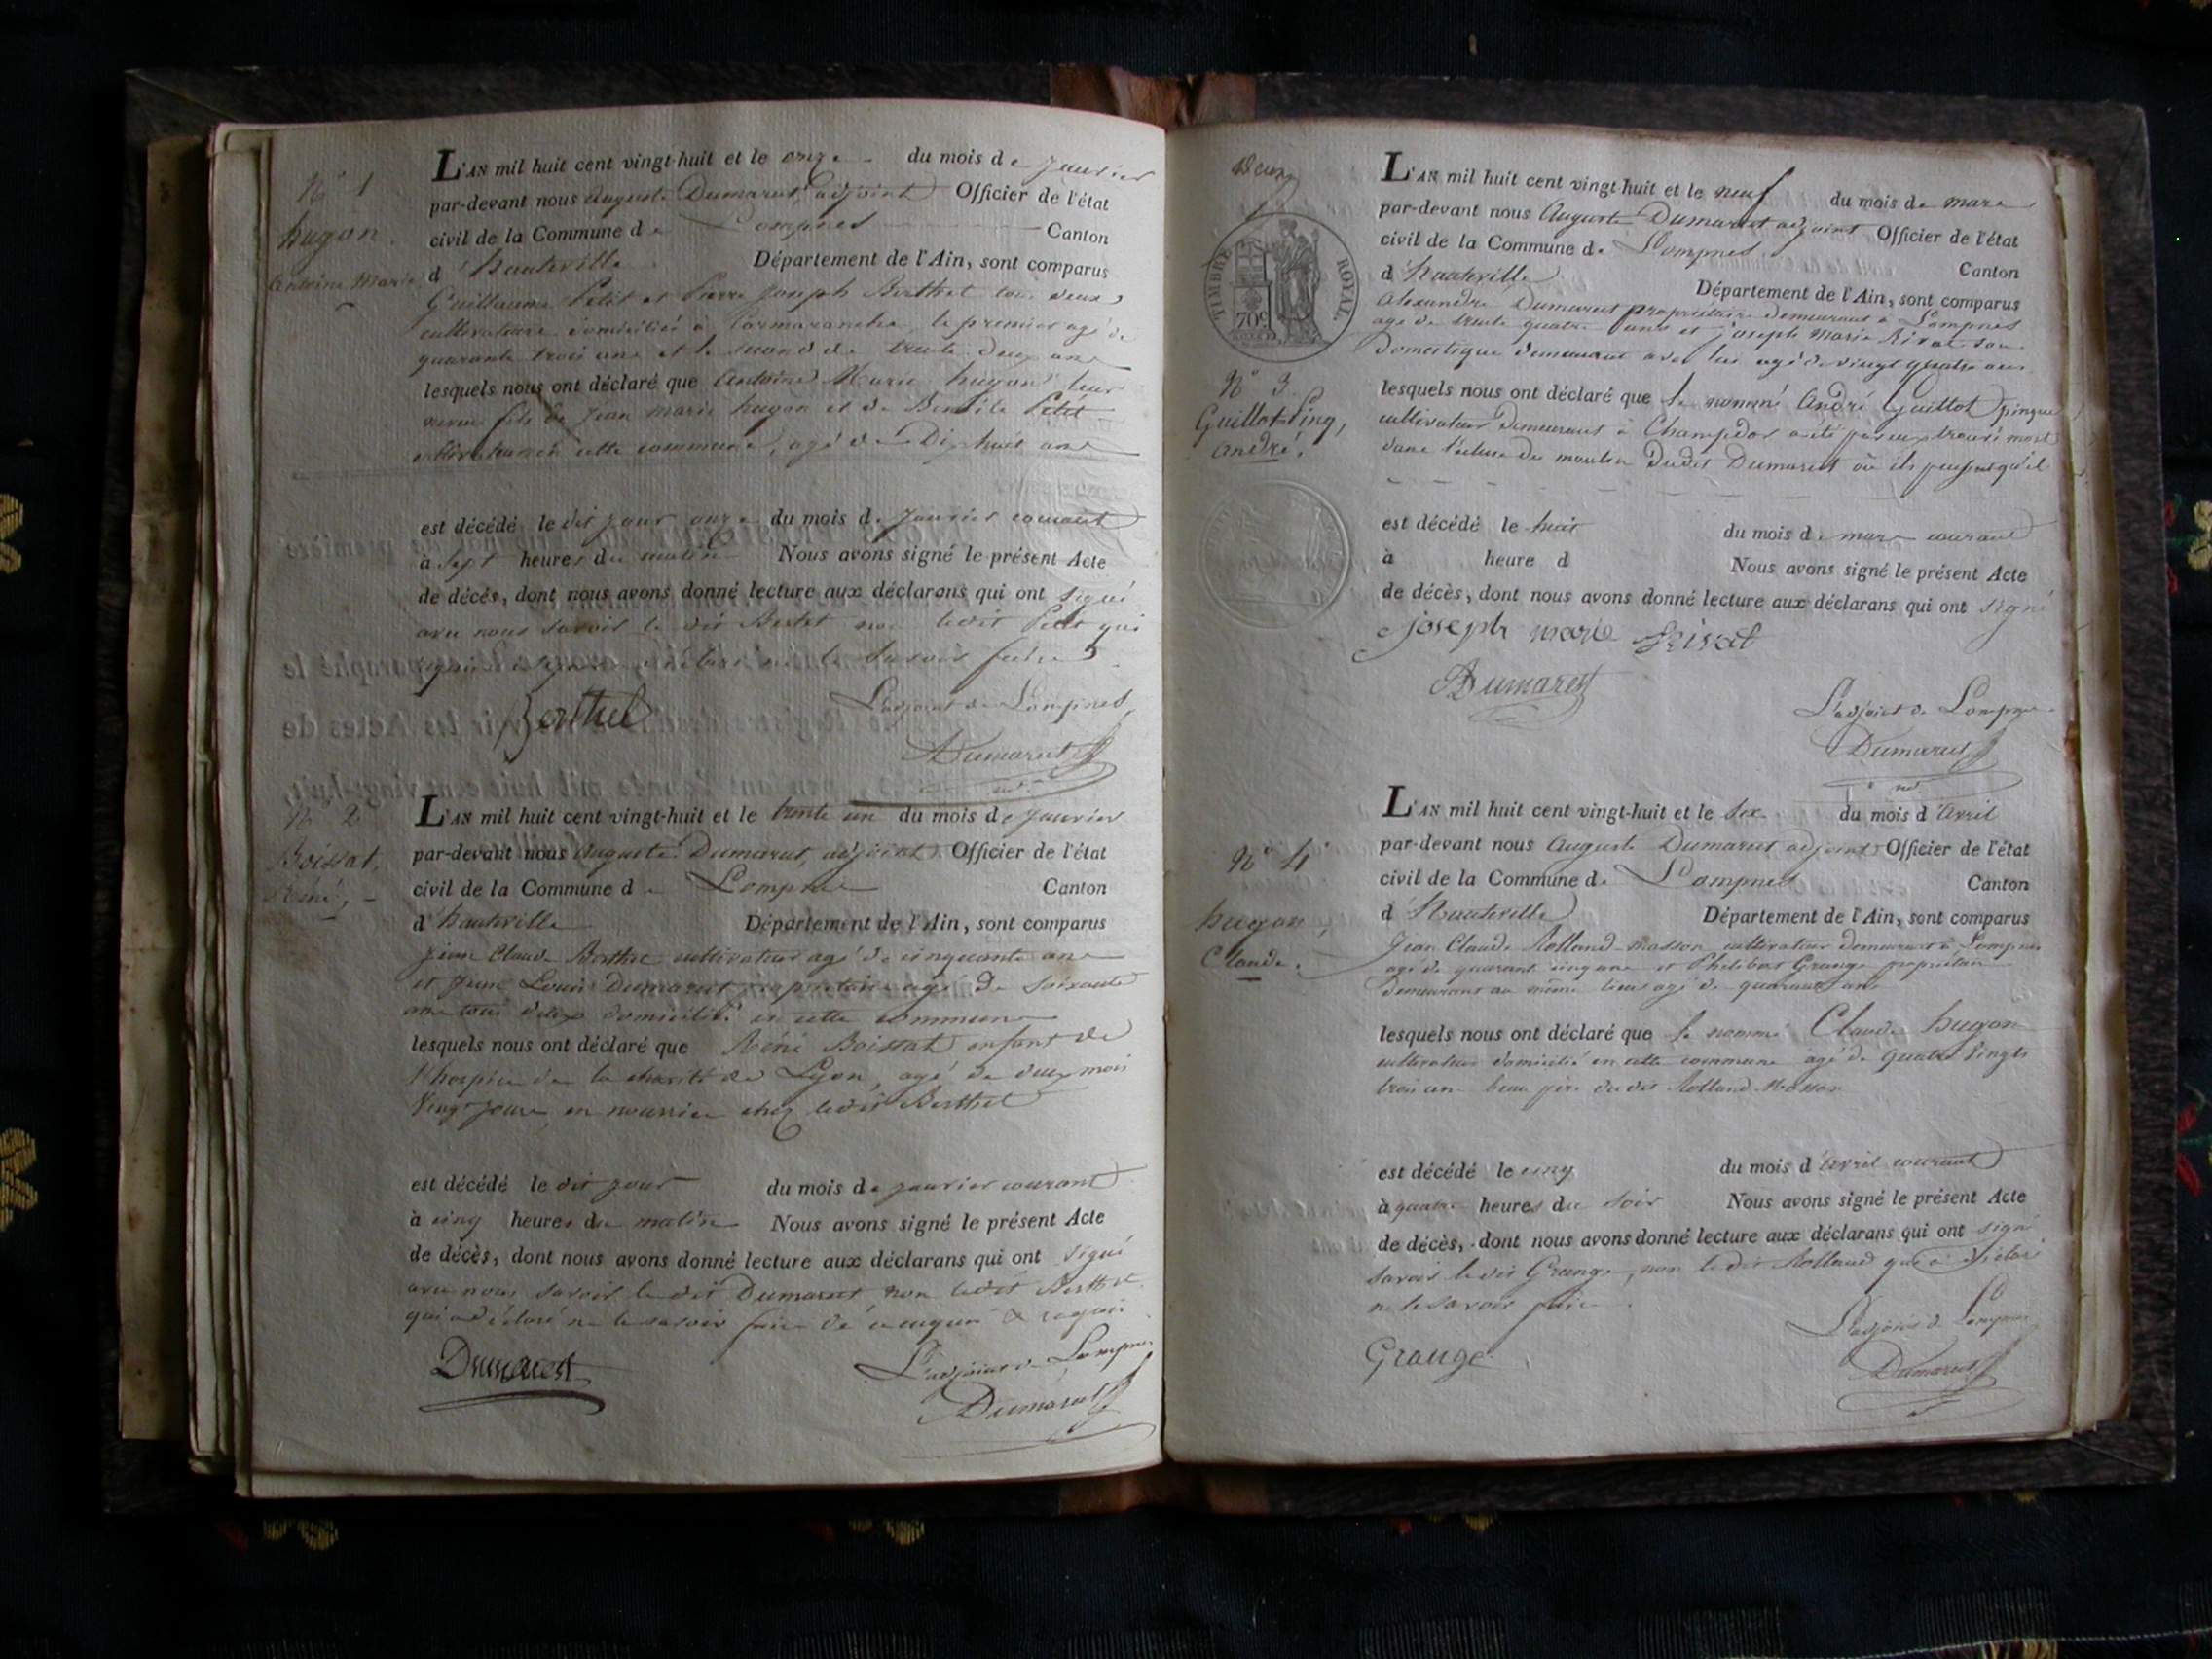 N° 1
hugon.
Antoine Marie
L'AN mil huit cent vingt-huit et le onze du mois de Janvier
par-devant nous Auguste Dumarest, adjoint Officier de l'état
civil de la Commune de Lompnes Canton
d'hauteville Département de l'Ain, sont comparus
Guillaume Petit et Pierre Joseph Berthet tous deux
cultivateurs domiciliés à Cormaranche, le premier agé de
quarante trois ans et le second de trente deux ans
lesquels nous ont déclaré que Antoine Marie hugon leur
neveu fils de Jean Marie hugon et de Petit
cette commune, agé de Dix huit ans
est décédé le dit jour onze du mois de Janvier courant
à Sept heures du matin Nous avons signé le présent Acte
de décès, dont nous avons donné lecture aux déclarans qui ont signé
avec nous savoir le dit Bertet non ledit Petit qui
requis de signer a déclaré ne le savoir faire
Berthet
L'adjoint de Lompnes,
Dumarest
N° 2
Boissat,
Réné,
L'AN mil huit cent vingt-huit et le trente un du mois de Janvier
par-devant nous Auguste Dumarest, adjoint Officier de l'état
civil de la Commune de Lompnes Canton
d'hauteville Département de l'Ain, sont comparus
Jean Claude Berthet cultivateur agé de cinquante ans
et Jean Louis Dumarest propriétaire agé de soixante
ans tous deux domiciliés en cette commune
lesquels nous ont déclaré que Réné Boissat enfant de
l'hospice de la charité de Lyon, agé de deux mois
vingt jours, en nourrice chez ledit Berthet
est décédé le dit jour du mois de janvier courant
à cinq heures du matin Nous avons signé le présent Acte
de décès, dont nous avons donné lecture aux déclarans qui ont signé
avec nous savoir le dit Dumarest non ledit Berthet
qui a déclaré ne le savoir faire de ce enquis & requis
Dumarest
L'adjoint de Lompnes
Dumarest
Deux
TIMBRE ROYAL.
70c
N° 3.
Guillot-Pinq,
André.
L'AN mil huit cent vingt-huit et le neuf du mois de mars
par-devant nous Auguste Dumarest adjoint Officier de l'état
civil de la Commune de Lompnes Canton
d'hauteville Département de l'Ain, sont comparus
Alexandre Dumarest propriétaire demeurant à Lompnes
agé de trente quatre ans et joseph Marie son
Domestique demeurant avec lui agé de vingt quatre ans
lesquels nous ont déclaré que le nommé André Guillot pingue
cultivateur Demeurant à Champdor a été par eux trouvé mort
dans l'écluse du moulin Dudit Dumarest où ils pensent qu'il
est décédé le huit du mois de mars courant
à heure d Nous avons signé le présent Acte
de décès, dont nous avons donné lecture aux déclarans qui ont signé
joseph marie
Dumarest
L'adjoint de Lompnes
Dumarest
N° 4
hugon,
Claude.
L'AN mil huit cent vingt-huit et le six du mois d'Avril
par-devant nous Auguste Dumarest adjoint Officier de l'état
civil de la Commune de Lompnes Canton
d'Hauteville Département de l'Ain, sont comparus
Jean Claude Rolland-masson cultivateur demeurant à Lompnes
agé de quarant cinq ans et Philibert Grange propriétaire
demeurant au même lieu agé de quarante ans
lesquels nous ont déclaré que le nommé Claude hugon
cultivateur domicilié en cette commune agé de quatre vingts
trois ans beau père du dit Rolland Masson
est décédé le cinq du mois d'avril courant
à quatre heures du soir Nous avons signé le présent Acte
de décès, dont nous avons donné lecture aux déclarans qui ont signé
savoir ledit Grange, non ledit Rolland qui a déclaré
ne le savoir faire.
Grange
L'adjoint de Lompnes
Dumarest